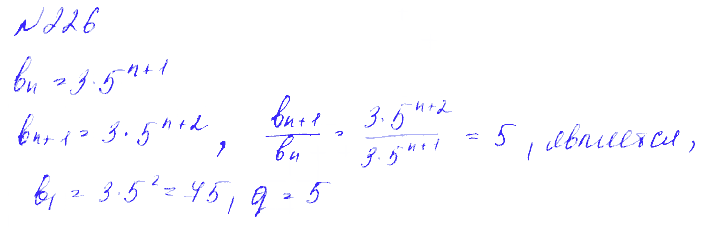 №226
bₙ = 3·5ⁿ⁺¹
bₙ₊₁ = 3·5ⁿ⁺², bₙ₊₁/bₙ = 3·5ⁿ⁺²/3·5ⁿ⁺¹ = 5, является,
b₁ = 3·5² = 75, q = 5